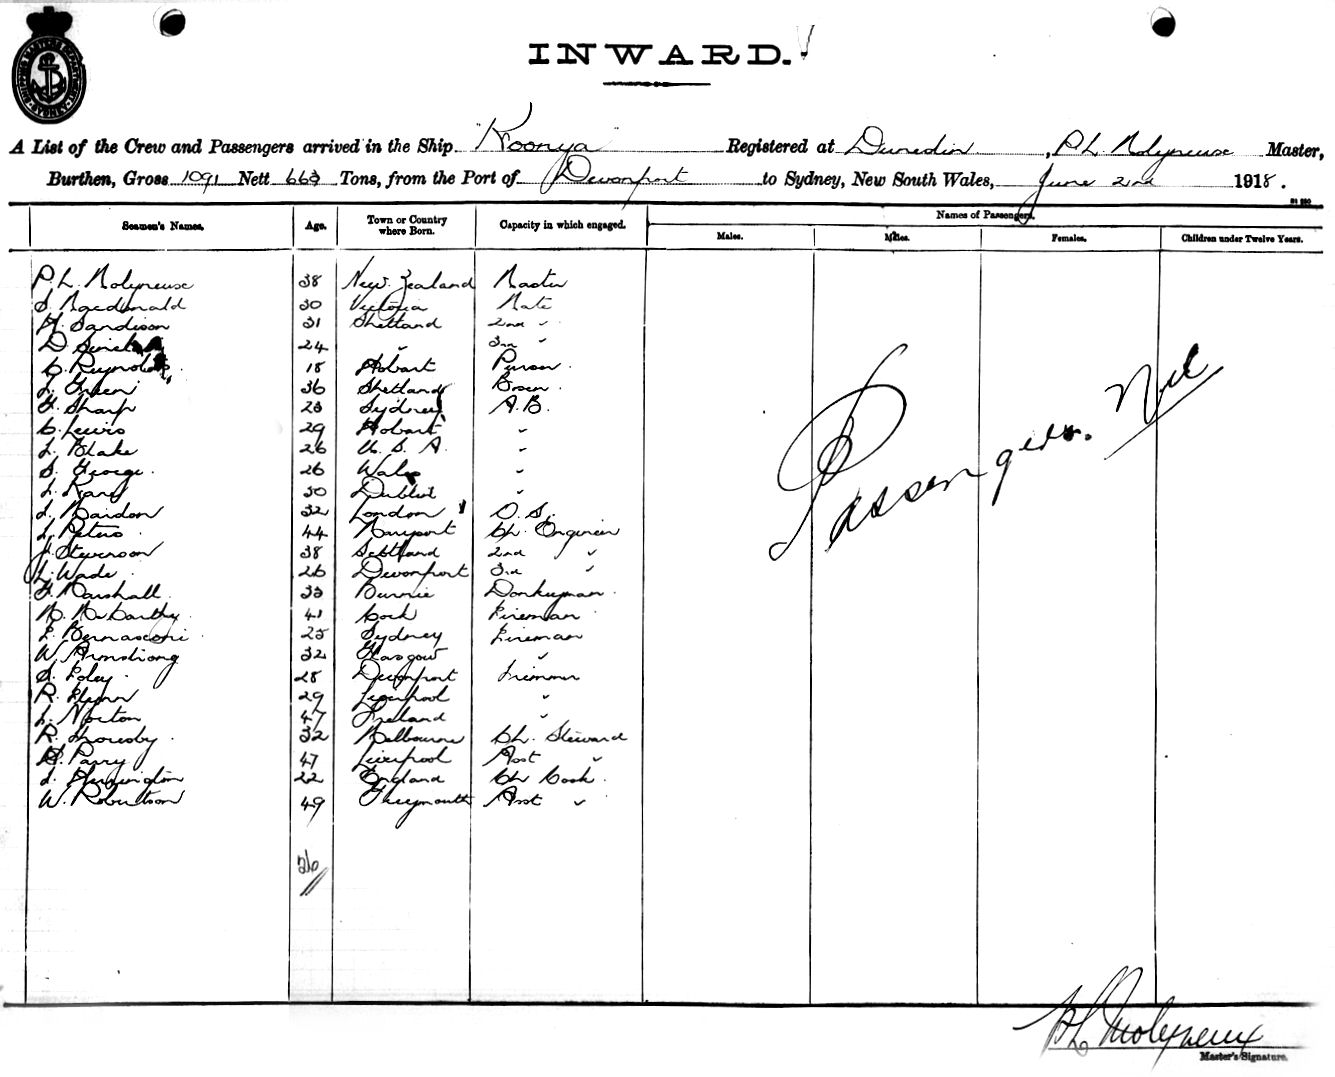 SHIPPING MASTERS DEPARTMENT SYDNEY
INWARD.
A List of the Crew and Passengers arrived in the Ship "Koonya" Registered at Dunedin, P L Molyneuse Master,
Burthen, Gross 1091 Nett 663 Tons, from the Port of Devonport to Sydney, New South Wales, June 2nd 1918.
Seamen's Names. Age. Town or Country where Born. Capacity in which engaged. Names of Passengers.
Males. Males. Females. Children under Twelve Years.
P. L. Molyneuse 38 New Zealand Master
S. Macdonald 30 Victoria Mate
Sandison 31 Shetland 2nd "
D 24 " 3rd "
C. Reynolds 18 Hobart Purser
J. Green 36 Shetland Bosun
F. Sharp 23 Sydney A.B.
C. Lewis 29 Hobart "
J. Blake 26 U. S. A. "
S. George 26 Wales "
J. 30 Dublin "
J. 32 London O. S.
J. Peters 44 Maryport Ch. Engineer
J. Stevenson 38 Scotland 2nd "
L. Wade 26 Devonport 3rd "
F. Marshall 33 Burnie Donkeyman
M. McCarthy 41 Cork Fireman
Bernasconi 25 Sydney Fireman
W. Armstrong 32 Glasgow "
S. Foley 28 Devonport Trimmer
R. Flynn 29 Liverpool "
J. Norton 47 Ireland "
R. Thoresby 32 Melbourne Ch. Steward
H. Parry 47 Liverpool Asst "
J. 22 England Ch Cook
W. Robertson 49 Greymouth Asst "
26
Passengers. Nil
P L Molyneux
Master's Signature.